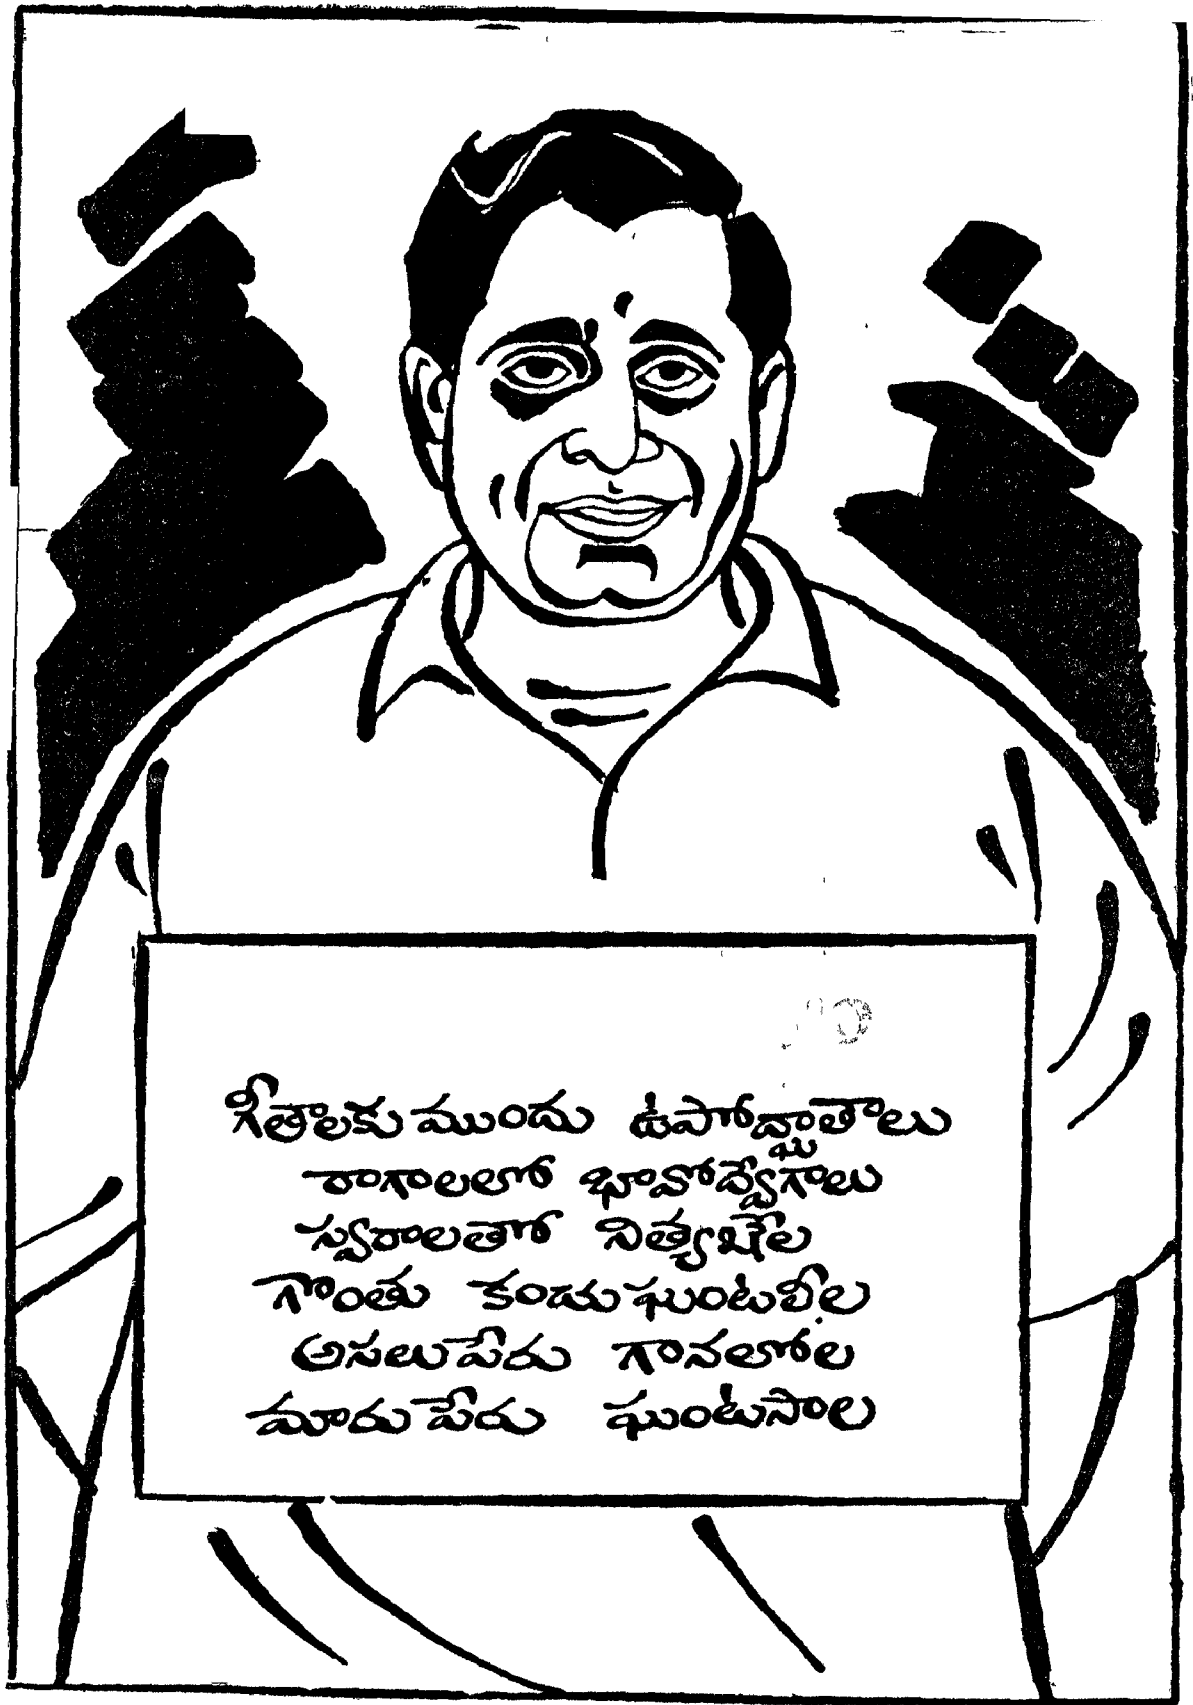 గీతాలకు ముందు ఉపోద్ఘాతాలు
రాగాలలో భావోద్వేగాలు
స్వరాలతో నిత్యఖేల
గొంతు కండుఘంటలీల
అసలుపేరు గానలోల
మారుపేరు ఘంటసాల